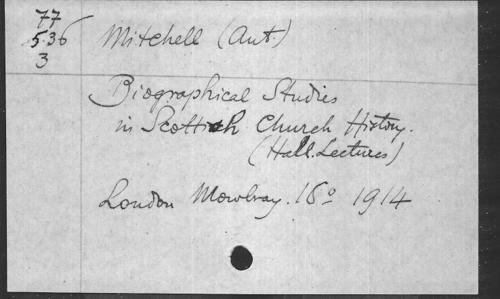 77
536
3
Mitchell (Ant.)
Biographical Studies
in Scottish Church History.
(Hall. Lectures)
London Mowbray. 16º 1914